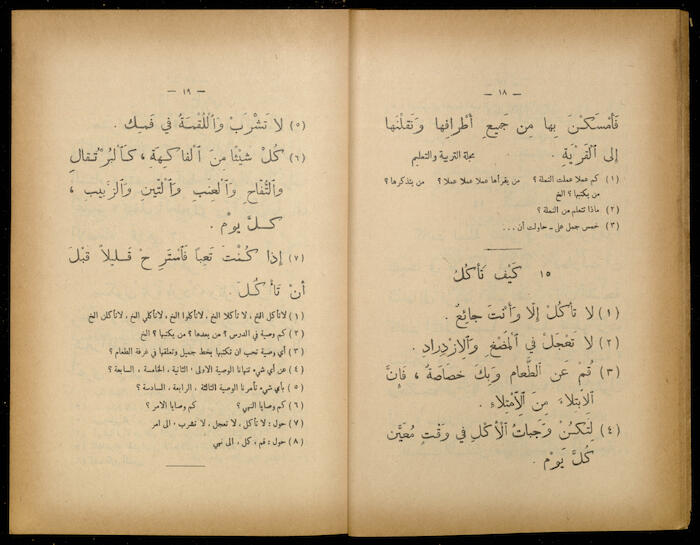 — ١٨ —
فَأَمْسَكْنَ بِها مِن جَميعِ أَطْرافِها وَنَقَلْنَها
إلى القَرْيَةِ . مجلة التربية والتعليم
(١) كم عملا عملت النملة ؟ من يقرأها عملا عملا ؟ من يتذكرها ؟
من يكتبها ؟ الخ
(٢) ماذا نتعلم من النملة ؟
(٣) خمس جمل على ــ حاولت أن ...
١٥ كَيْفَ تَأْكُلُ
(١) لا تَأْكُلْ إلّا وَأَنْتَ جائِعٌ .
(٢) لا تَعْجَلْ في المَضْغِ وَالازْدِرادِ .
(٣) قُمْ عَنِ الطَّعامِ وَبِكَ خَصاصَةٌ ، فَإنَّ
الابْتِلاءَ مِنَ الامْتِلاءِ .
(٤) لِتَكُنْ وَجَباتُ الأَكْلِ في وَقْتٍ مُعَيَّنٍ
كُلَّ يَوْمٍ .
— ١٩ —
(٥) لا تَشْرَبْ وَاللُّقْمَةُ في فَمِكَ .
(٦) كُلْ شَيْئًا مِنَ الفاكِهَةِ ، كَالبُرْتقالِ
وَالتُّفّاحِ وَالعِنَبِ وَالتّينِ وَالزَّبيبِ ،
كلَّ يَوْمٍ .
(٧) إذا كُنْتَ تَعِبًا فَاسْتَرِحْ قَليلاً قَبْلَ
أنْ تَأْكُلَ .
(١) لاتأكل الخ ، لا تأكلا الخ ، لاتأكلوا الخ ، لاتأكلي الخ ، لاتأكلن الخ
(٢) كم وصية في الدرس ؟ من يعدها ؟ من يكتبها ؟ الخ
(٣) أي وصية تحب ان تكتبها بخط جميل وتعلقها في غرفة الطعام ؟
(٤) عن أي شيء تنهانا الوصية الاولى ، الثانية ، الخامسة ، السابعة ؟
(٥) بأي شيء تأمرنا الوصية الثالثة ، الرابعة ، السادسة ؟
(٦) كم وصايا النهي ؟ كم وصايا الامر ؟
(٧) حول : لا تأكل ، لا تعجل ، لا تشرب ، الى امر
(٨) حول : قم ، كل ، الى نهي